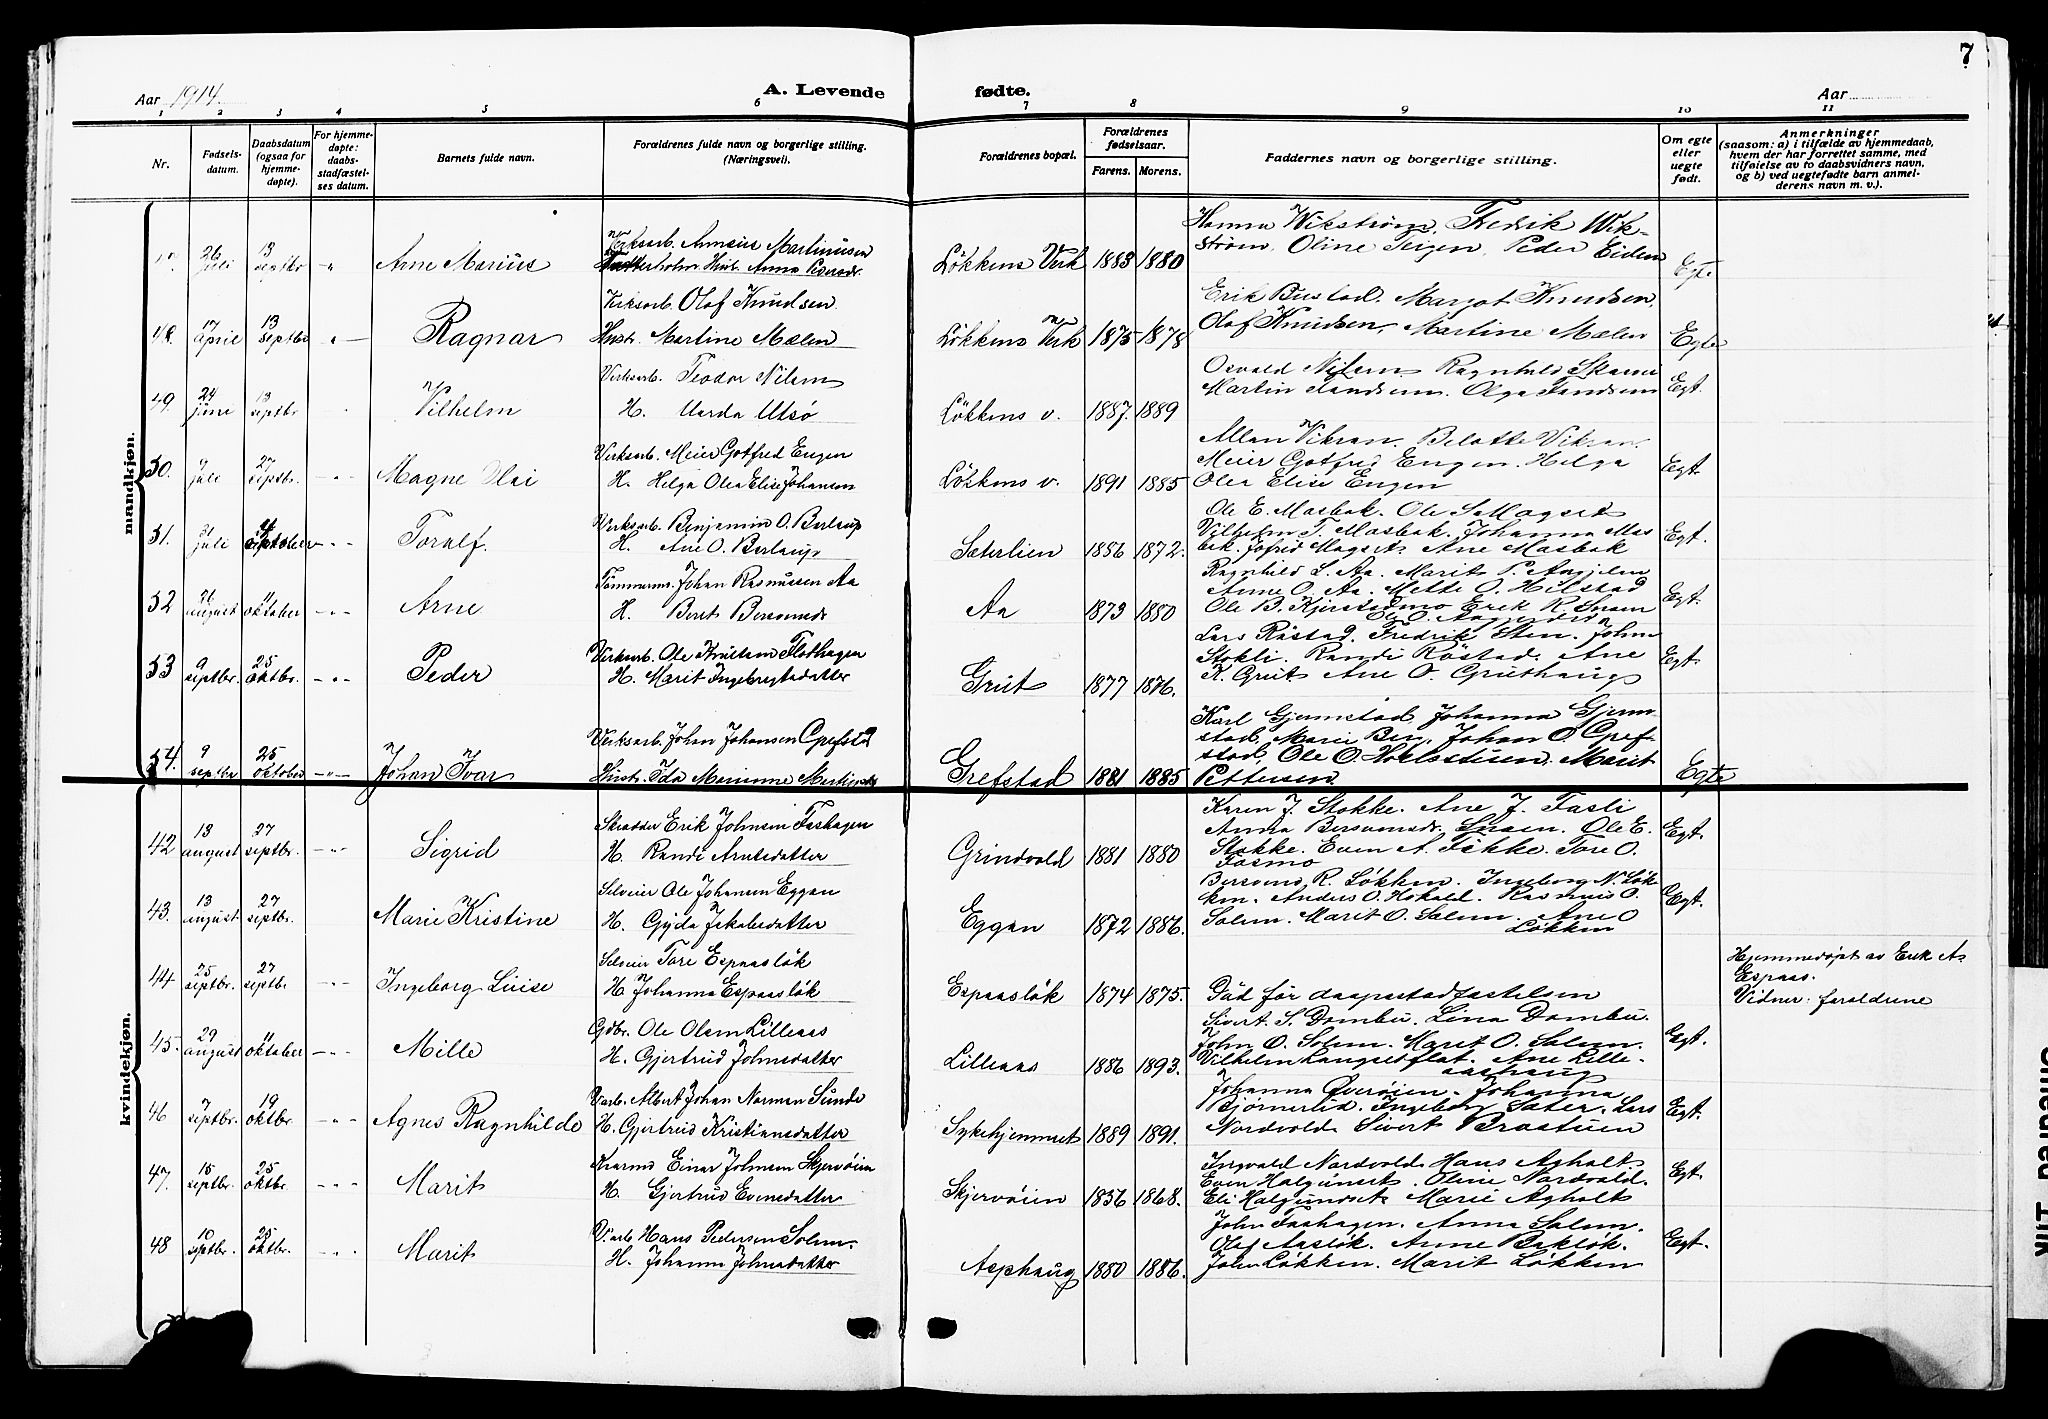 7
Aar 1914.
A. Levende
fødte.
Aar
1 2 3 4 5 6 7 8 9 10 11
Nr.
Fødsels-
datum.
Daabsdatum
(ogsaa for
hjemme-
døpte).
For hjemme-
døpte:
daabs-
stadfæstel-
ses datum.
Barnets fulde navn.
Forældrenes fulde navn og borgerlige stilling.
(Næringsvei).
Forældrenes bopæl.
Forældrenes
fødselsaar.
Farens. Morens.
Faddernes navn og borgerlige stilling.
Om egte
eller
uegte
født.
Anmerkninger
(saasom: a) i tilfælde av hjemmedaab,
hvem der har forrettet samme, med
tilføielse av to daabsvidners navn,
og b) ved uegtefødte barn anmel-
derens navn m. v.).
mandkjøn.
26 juli
13 septbr
Arne Marius
Verksarb. Arneius Martinusen
Hustr. Anna Pedersdr.
Løkkens Verk
1883 1880
Hanna Wikstrøm. Fredrik Wik-
strøm. Oline Teigen. Peder Eidem
Egte
48.
17 april
13 septbr
Ragnar
Verksarb. Olaf Knudsen
Hustr. Martine Mælen
Løkkens Verk
1875 1878
Erik Bustad. Margot Knudsen.
Olaf Knudsen. Martine Mælen
Egte
49.
24 juni
13 septbr
Vilhelm
Verksarb. Teodor Nilsen
H. Uarda Utsø
Løkkens v.
1887. 1889
Osvald Nilsen. Ragnhild
Martin
Egt.
50.
7 juli
27 septbr.
Magne Olai
Verksarb. Meier Gotfred Engen
H. Helga Olea Elise Johansen
Løkkens v.
1891 1885
Allan Vikran. Belotte Vikran.
Meier Gotfred Engen. Helga
Olea Elise Engen
Egt.
51.
juli
Toralf.
Verksarb. Benjamin O. Berlaup
H. Ane O. Berlaup
Sæterlien
1886 1872.
Ole E. Masbak. Ole
Vilhelm T. Masbak. Johanna Mas
bak. Ane Masbak
Egt.
52
26 august
11 oktober
Arne
Tømmerm. Johan Rasmussen Aa
H. Beret Bersvensdr
Aa
1873 1880
Ragnhild L. Aa. Marit P.
Anne O. Aa. Mette O. Hilstad
Ole B. Kjerstadmo Erik R. Snoen
Egt.
53
9 septbr.
25 oktbr.
Peder
Verksarb. Ole Kristian Flothagen
H. Marit Ingebrigtsdatter
Grut
1877 1876.
Lars Røstad. Fredrik Sten. John
Stokli. Randi Røstad. Ane
K. Grut. Ane O. Gruthaug
Egt.
54.
9 septbr
25 oktober
Johan Ivar
Verksarb. Johan Johansen Grefstad
Hustr. Ida Marianne
Grefstad
1881 1885
Karl Gjermstad. Johanna Gjerm-
stad. Marie Johan O. Gref-
stad, Ole O. Marit
Pettersen
Egte
kvindekjøn.
42
13 august
27 septbr.
Sigrid
Skrædder Erik Johnsen Fashagen
H. Randi Arntsdatter
Grindvold
1881 1880
Karen J. Stokke. Ane J. Fasli
Anna Bersvensdr. Snoen. Ole E.
Stokke. Even A. Tore O.
Fasmo
Egt.
43.
13 august
27 septbr.
Marie Kristine
Selveier Ole Johansen Eggen
H. Gyda Jakobsdatter
Eggen
1872 1886.
Bersvend R. Løkken. Ingeborg N. Løk-
ken. Anders O. Hokald. Rasmus O.
Solem. Marit O. Solem. Ane O
Løkken
Egt.
44
25 septbr.
27 septbr
Ingeborg Luise
Selveier Tore Espaasløk
H. Johanna Espaasløk
Espaasløk
1874 1875.
Død før daapsstadfæstelsen
Hjemmedøpt av Erik A.
Espaas.
Vidner: foreldrene
45.
29 august
11 oktober
Mille
Gdbr. Ole Olsen Lilleaas
H. Gjertrud Johnsdatter
Lilleaas
1886 1893.
Sivert S. Dombu. Lina Dombu.
John O. Solem. Marit O. Solem.
Vilhelm Langsetflat. Ane Lille-
aashaug
Egt.
46
7 septbr.
19 oktbr.
Agnes Ragnhilde
V.arb. Albert Johan Norman Sunde
H. Gjertrud Kristiansdatter
Sykehjemmet
1889 1891.
Johanna Øverøien. Johanna
Bjørnerlid. Ingeborg Sæter. Lars
Nordvold Sivert Brostuen
Egt.
47.
15 septbr.
25 oktbr.
Marit
Einar Johnsen Skjervøien
H. Gjertrud Evensdatter
Skjervøien
1856 1868.
Ingvald Nordvold. Hans Agholt.
Even Halgunset. Oline Nordvold.
Eli Halgunset. Marie Agholt
Egt.
48
10 septbr.
25 oktbr.
Marit
V.arb Hans Pedersen Solem.
H. Johanna Johnsdatter
Asphaug
1880 1886.
John Fashagen. Anna Solem.
Olaf Aasløk. Anne Bakløk.
John Løkken. Marit Løkken
Egt.